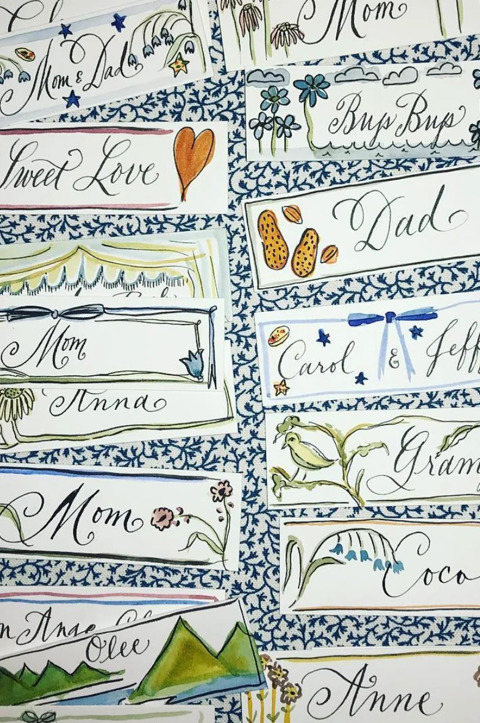 Mom
Mom & Dad
Bup Bup
Sweet Love
Dad
Mom
Carol & Jeff
Anna
Gram
Mom
Coco
Anne
Olee
Anne